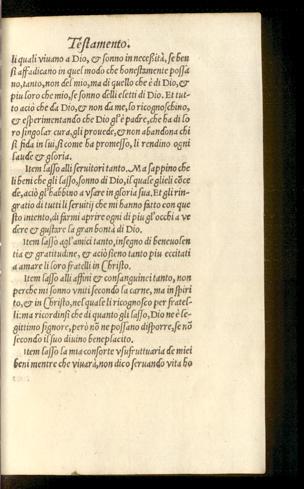 Testamento.
li quali viuano a Dio, & sonno in necessità, se ben
si affadicano in quel modo che honestamente possa
no, tanto, non del mio, ma di quello che è di Dio, &
piu loro che mio, se sonno delli eletti di Dio. Et tut-
to aciò che da Dio, & non da me, lo ricognoschino,
& esperimentando che Dio gl'è padre, che ha di lo
ro singolar cura, gli prouede, & non abandona chi
si fida in lui, sì come ha promesso, li rendino ogni
laude & gloria.
Item lasso alli seruitori tanto. Ma sappino che
li beni che gli lasso, sonno di Dio, il quale glieli cõce
de, aciò gl'habbino a vsare in gloria sua. Et gli rin-
gratio di tutti li seruitij che mi hanno fatto con que
sto intento, di farmi aprire ogni dì piu gl'occhi a ve
dere & gustare la gran bontà di Dio.
Item lasso agl'amici tanto, in segno di beneuolen
tia & gratitudine, & aciò sieno tanto piu eccitati
a amare li loro fratelli in Christo.
Item lasso alli affini & consanguinei tanto, non
perche mi sonno vniti secondo la carne, ma in spiri
to, & in Christo, nel quale li ricognosco per fratel-
li: ma ricordinsi che di quanto gli lasso, Dio ne è le-
gittimo signore, però nõ ne possano disporre, se nõ
secondo il suo diuino beneplacito.
Item lasso la mia consorte vsufruttuaria de miei
beni mentre che viuarà, non dico seruando vita ho